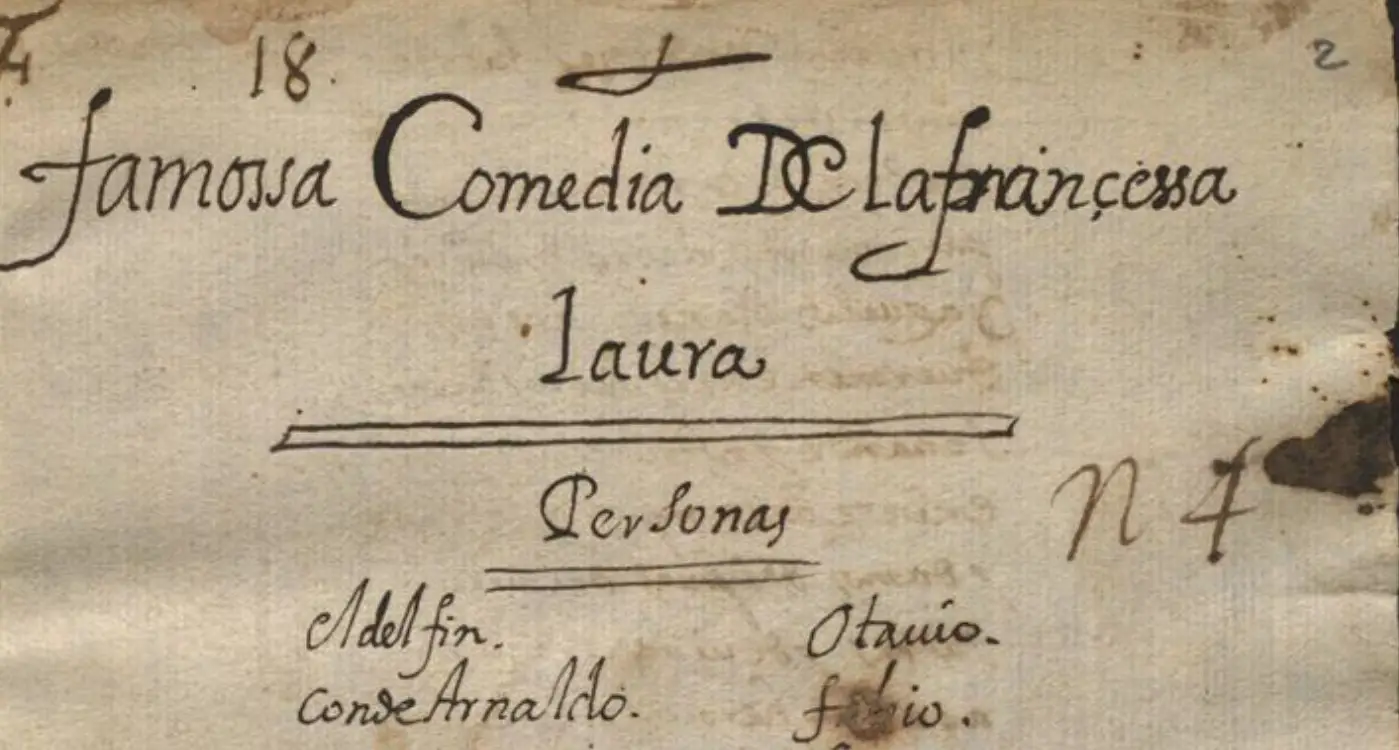 18. 2
famossa Comedia De la françessa
laura
Personas
n 4
el delfin. Otauio.
conde Arnaldo. fabio.